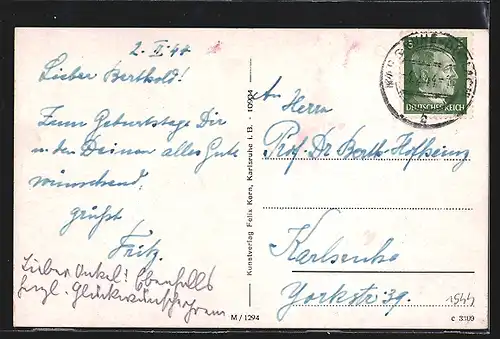 2. II. 44
Lieber Berthold!
Zum Geburtstage Dir
u. den Deinen alles Gute
wünschend,
grüsst
Fritz.
Lieber Onkel! Ebenfalls
herzl. Glückwünsche
Kunstverlag Felix Kern, Karlsruhe i. B. - 10904
An Herrn
Prof. Dr Berth. Hofheinz
Karlsruhe
Yorkstr. 39.
1944
DEUTSCHES REICH
M / 1294
c 3109